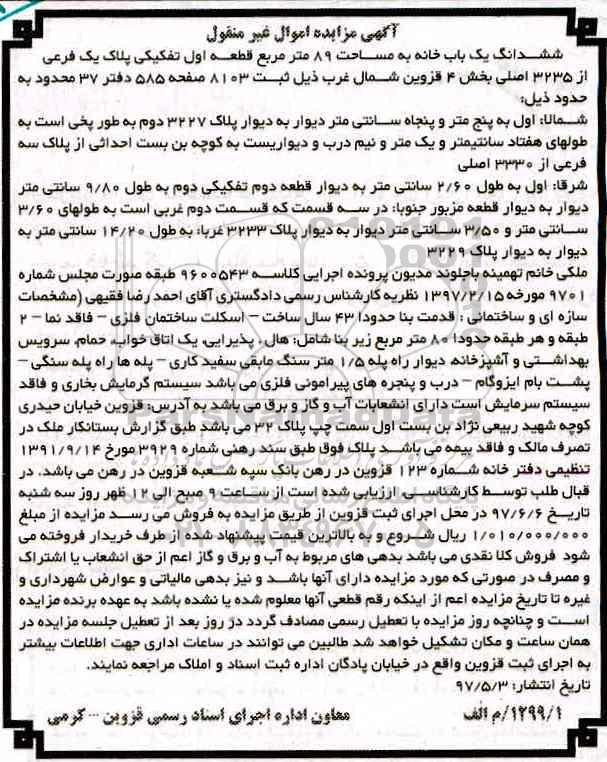 آگهی مزایده اموال غیر منقول
ششدانگ یک باب خانه به مساحت ۸۹ متر مربع قطعه اول تفکیکی پلاک یک فرعی
از ۳۲۳۵ اصلی بخش ۴ قزوین شمال غرب ذیل ثبت ۸۱۰۳ صفحه ۵۸۵ دفتر ۳۷ محدود به
حدود ذیل:
شمالا: اول به پنج متر و پنجاه سانتی متر دیوار به دیوار پلاک ۳۲۲۷ دوم به طور پخی است به
طولهای هفتاد سانتیمتر و یک متر و نیم درب و دیواریست به کوچه بن بست احداثی از پلاک سه
فرعی از ۳۳۳۰ اصلی
شرقا: اول به طول ۲/۶۰ سانتی متر به دیوار قطعه دوم تفکیکی دوم به طول ۹/۸۰ سانتی متر
دیوار به دیوار قطعه مزبور جنوبا: در سه قسمت که قسمت دوم غربی است به طولهای ۳/۶۰
سانتی متر و ۳/۵۰ سانتی متر دیوار به دیوار پلاک ۳۲۳۳ غربا: به طول ۱۴/۲۰ سانتی متر به
دیوار به دیوار پلاک ۳۲۲۹
ملکی خانم تهمینه باجلوند مدیون پرونده اجرایی کلاسه ۹۶۰۰۵۴۳ طبقه صورت مجلس شماره
۹۷۰۱ مورخه ۱۳۹۷/۲/۱۵ نظریه کارشناس رسمی دادگستری آقای احمد رضا فقیهی (مشخصات
سازه ای و ساختمانی : قدمت بنا حدودا ۴۳ سال ساخت – اسکلت ساختمان: فلزی – فاقد نما – ۲
طبقه و هر طبقه حدودا ۸۰ متر مربع زیر بنا شامل: هال، پذیرایی، یک اتاق خواب، حمام، سرویس
بهداشتی و آشپزخانه، دیوار راه پله ۱/۵ متر سنگ مابقی سفید کاری – پله ها راه پله سنگی –
پشت بام ایزوگام – درب و پنجره های پیرامونی فلزی می باشد سیستم گرمایش بخاری و فاقد
سیستم سرمایش است دارای انشعابات آب و گاز و برق می باشد به آدرس: قزوین خیابان حیدری
کوچه شهید ربیعی نژاد بن بست اول سمت چپ پلاک ۳۲ می باشد طبق گزارش بستانکار ملک در
تصرف مالک و فاقد بیمه می باشد پلاک فوق طبق سند رهنی شماره ۳۹۲۹ مورخ ۱۳۹۱/۹/۱۴
تنظیمی دفتر خانه شماره ۱۲۳ قزوین در رهن بانک سپه شعبه قزوین در رهن می باشد. در
قبال طلب توسط کارشناسی ارزیابی شده است از ساعت ۹ صبح الی ۱۲ ظهر روز سه شنبه
تاریخ ۹۷/۶/۶ در محل اجرای ثبت قزوین از طریق مزایده به فروش می رسد مزایده از مبلغ
۱/۰۱۰/۰۰۰/۰۰۰ ریال شروع و به بالاترین قیمت پیشنهاد شده از طرف خریدار فروخته می
شود فروش کلا نقدی می باشد بدهی های مربوط به آب و برق و گاز اعم از حق انشعاب یا اشتراک
و مصرف در صورتی که مورد مزایده دارای آنها باشد و نیز بدهی مالیاتی و عوارض شهرداری و
غیره تا تاریخ مزایده اعم از اینکه رقم قطعی آنها معلوم شده یا نشده باشد به عهده برنده مزایده
است و چنانچه روز مزایده با تعطیل رسمی مصادف گردد در روز بعد از تعطیل جلسه مزایده در
همان ساعت و مکان تشکیل خواهد شد طالبین می توانند در ساعات اداری جهت اطلاعات بیشتر
به اجرای ثبت قزوین واقع در خیابان پادگان اداره ثبت اسناد و املاک مراجعه نمایند.
تاریخ انتشار: ۹۷/۵/۳
معاون اداره اجرای اسناد رسمی قزوین – کرمی
۱۲۹۹/۱/م الف